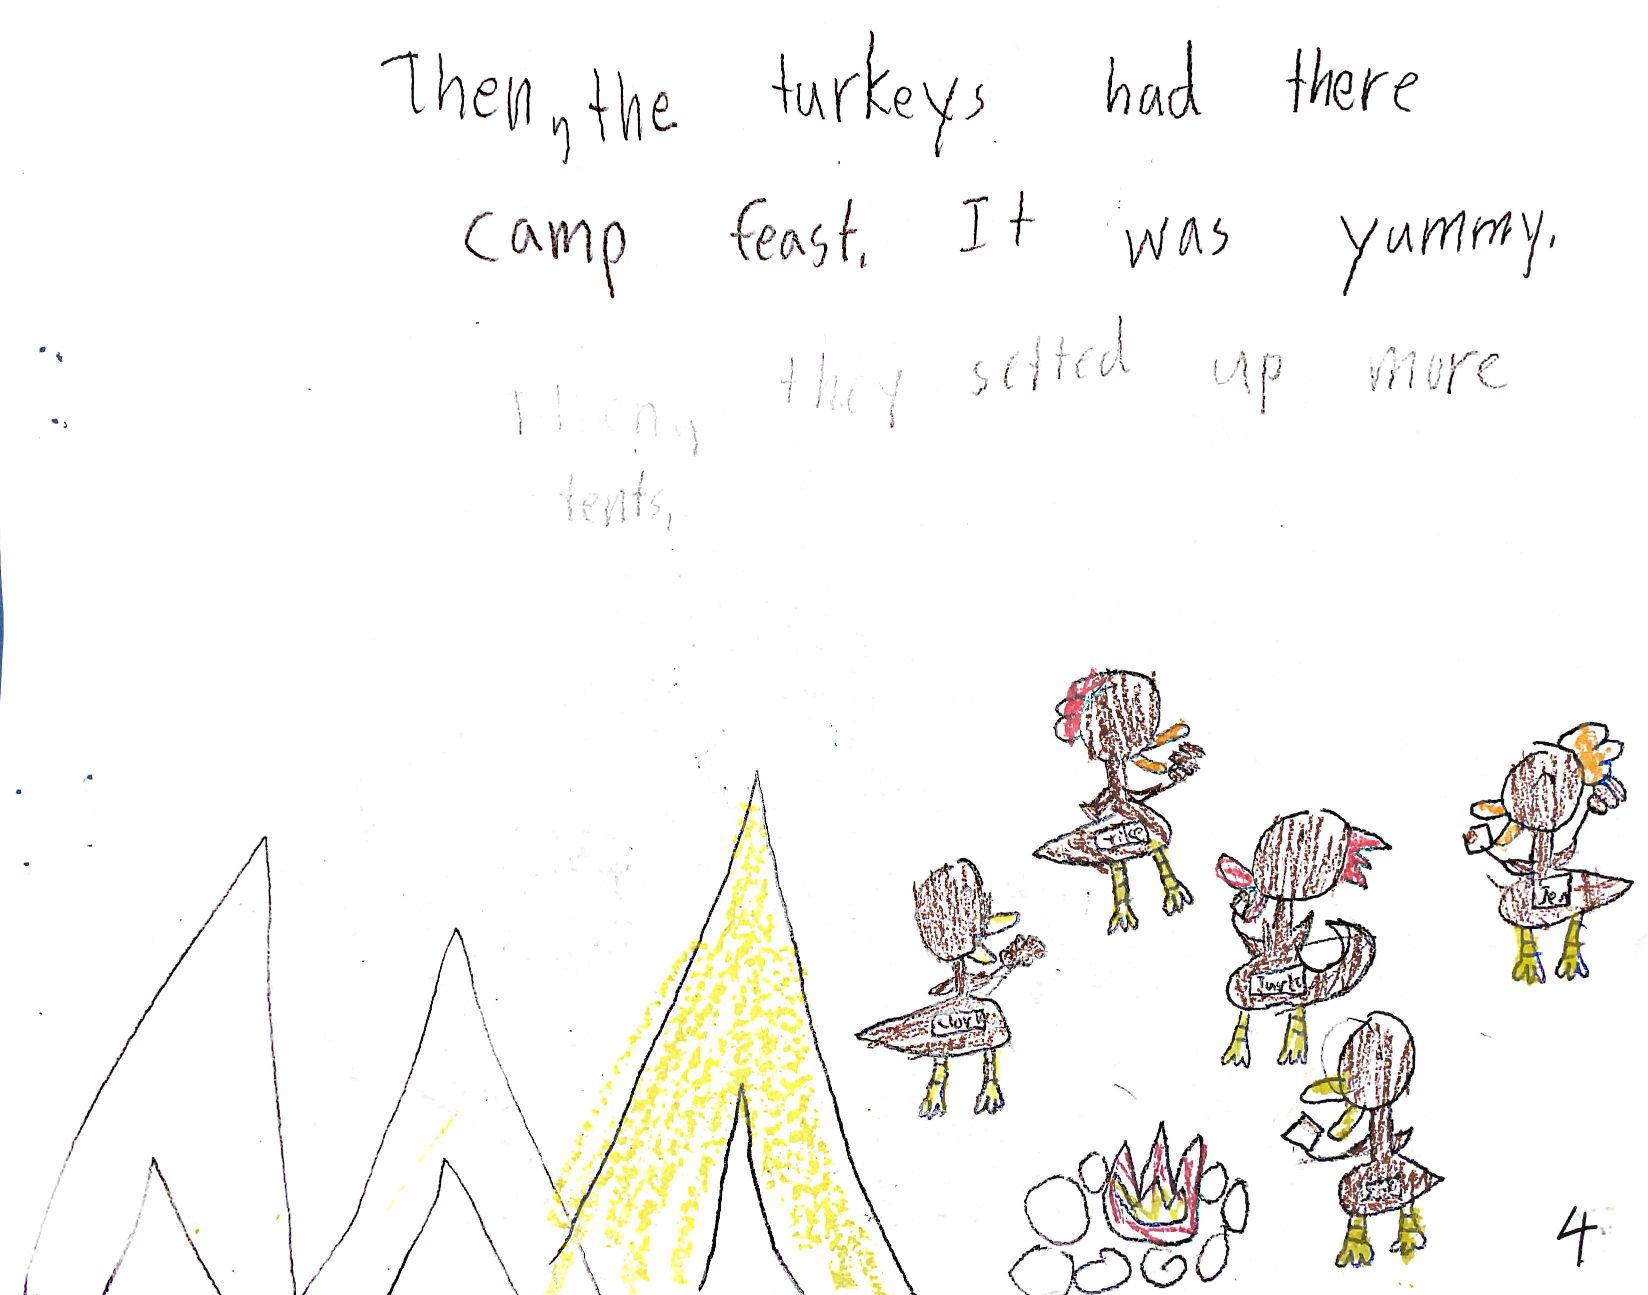 Then, the turkeys had there
camp feast. It was yummy.
Then, they setted up more
tents.
Jen
4